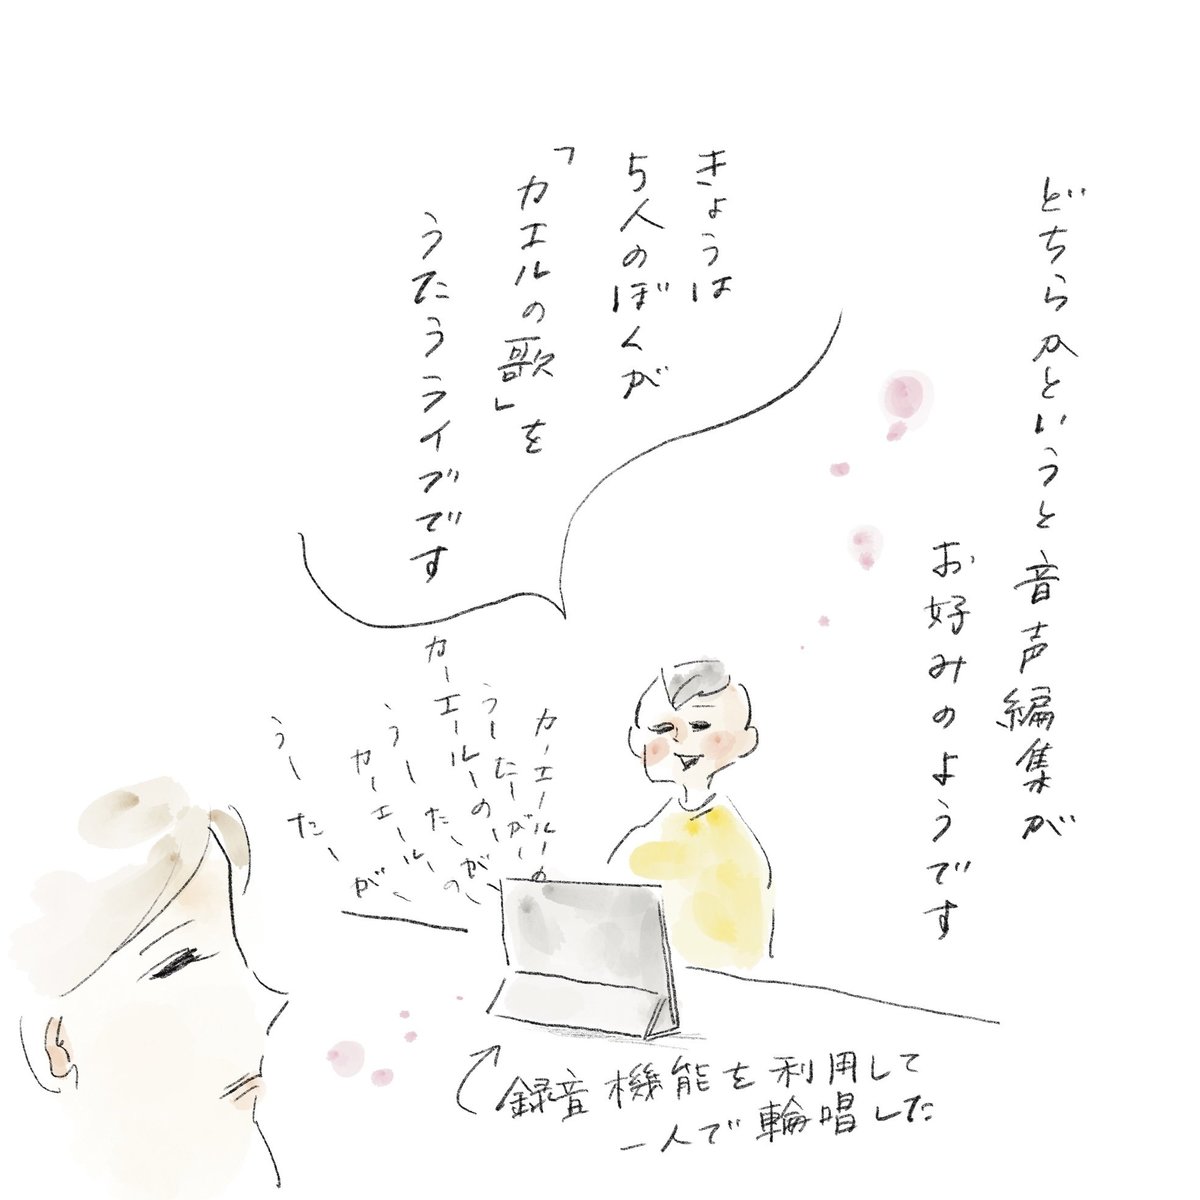 どちらかというと音声編集が
お好みのようです
きょうは
5人のぼくが
「カエルの歌」を
うたうライブです
カーエールーの
うーたーがー
カーエールーのー
うーたーがー
カーエールーの
うーたーがー
録音機能を利用して
一人で輪唱した